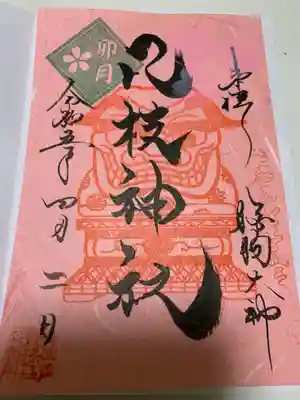 奉拝
狛狗大神
八枝神社
卯月
令和五年四月二日